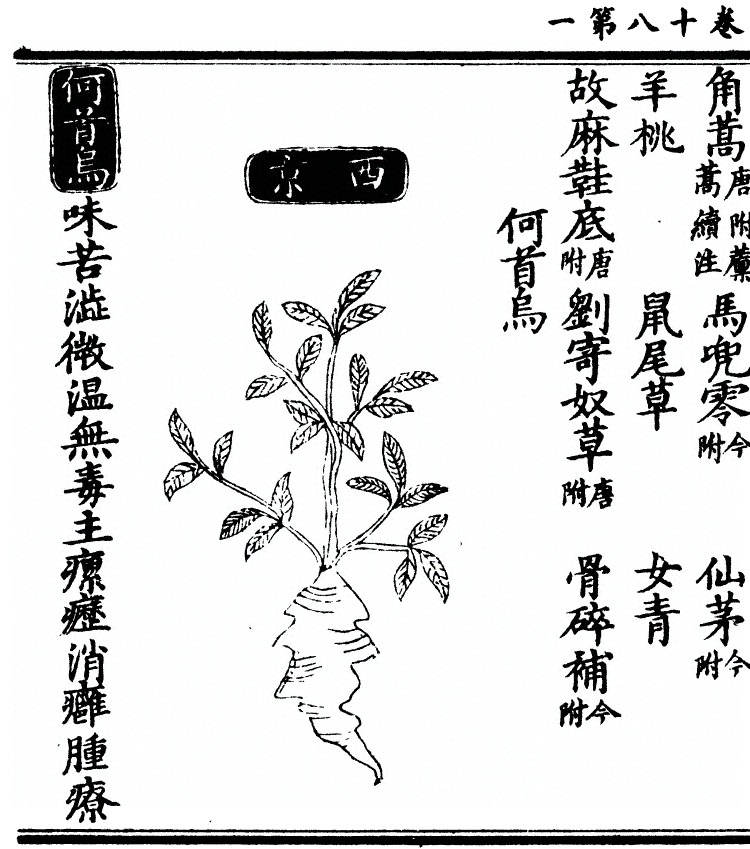 卷十八第一
角蒿唐附藁蒿續注 馬兜零今附 仙茅今附
羊桃 鼠尾草 女青
故麻鞋底唐附 劉寄奴草唐附 骨碎補今附
何首烏
西京
何首烏味苦澁微温無毒主瘰癧消癰腫療